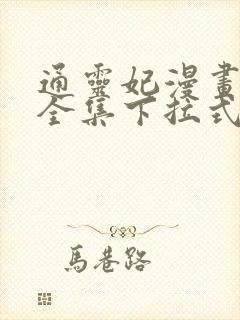 通靈妃漫畫
全集下拉式
馬巷路